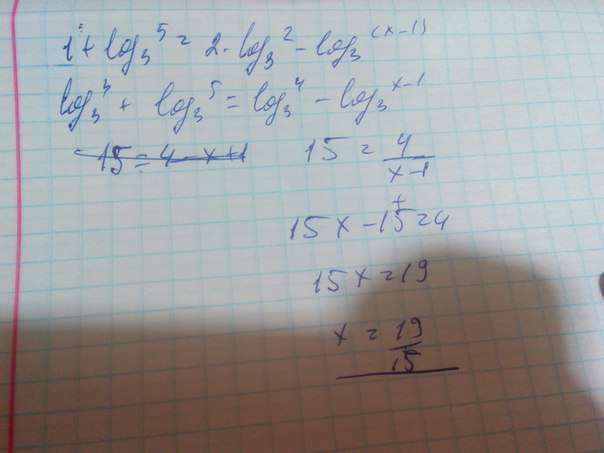 1 + log₃5 = 2·log₃2 - log₃(x-1)
log₃3 + log₃5 = log₃4 - log₃x-1
15 = 4 - x+1
15 = 4/(x-1)
15x - 15 = 4
15x = 19
x = 19/15